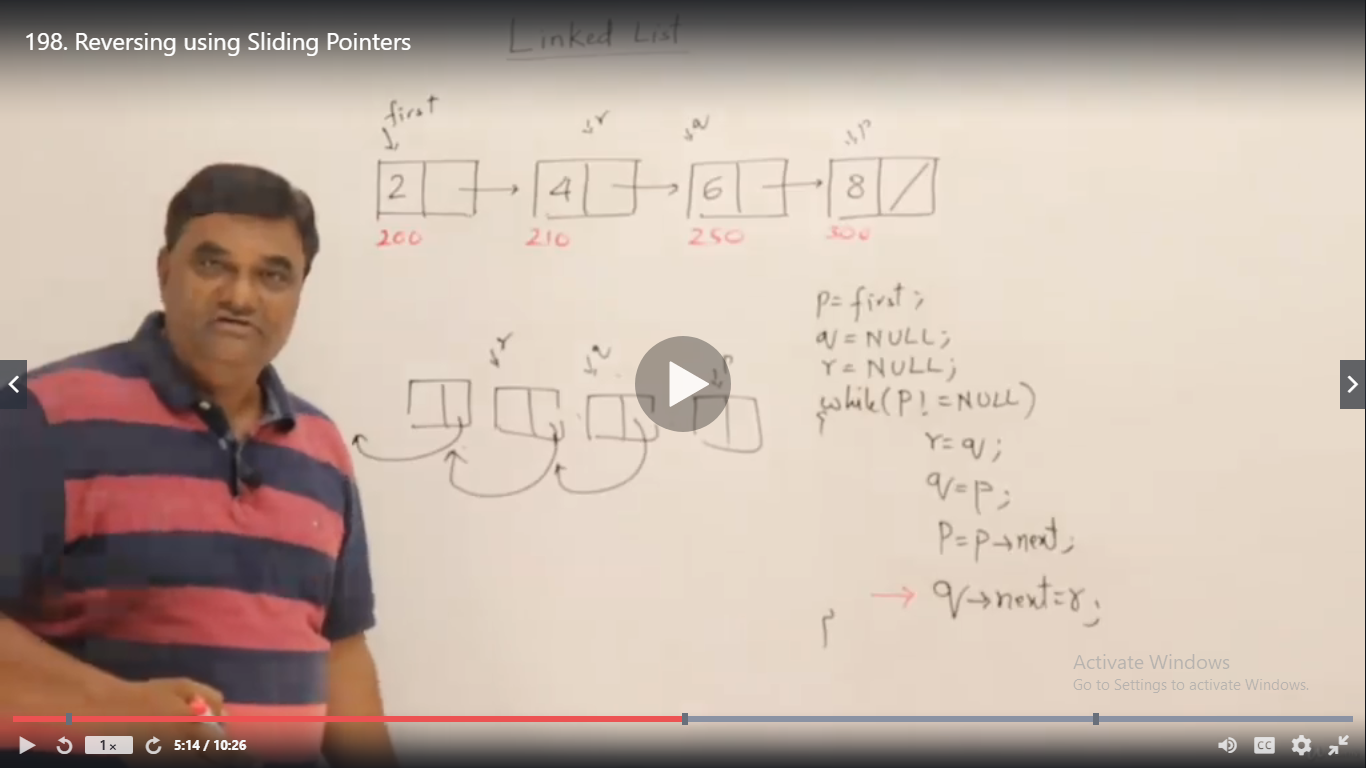 198. Reversing using Sliding Pointers
Linked List
first
r
q
p
2
4
6
8
200
210
250
300
r
q
p
p=first;
q=NULL;
r=NULL;
while(P!=NULL)
{
r=q;
q=p;
P=p→next;
→ q→next=r;
}
Activate Windows
Go to Settings to activate Windows.
1×
5:14 / 10:26
CC